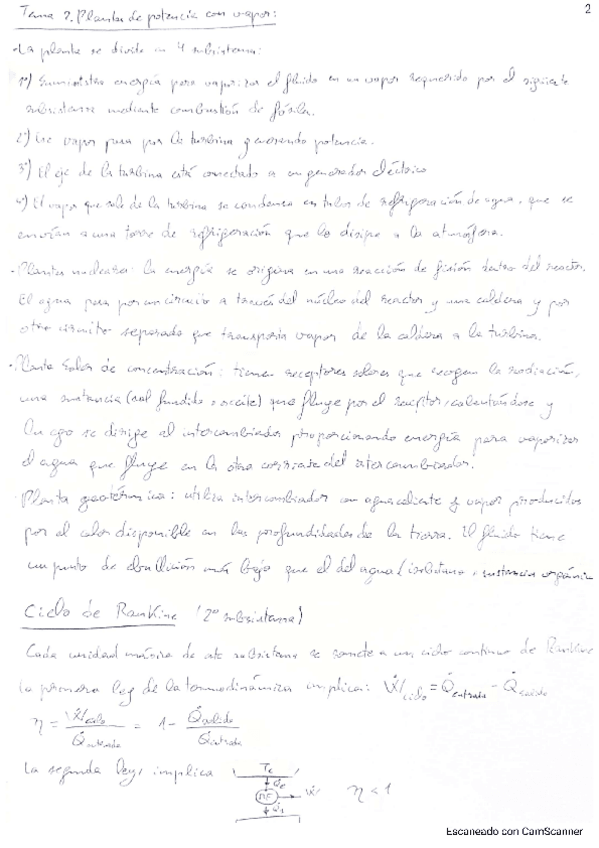 Tema 7. Plantas de potencia con vapor:
2
- La planta se divide en 4 subsistemas:
1º) Suministra energía para vaporizar el fluido en un vapor requerido por el siguiente
subsistema mediante combustión de fósiles.
2º) Ese vapor pasa por la turbina generando potencia.
3º) El eje de la turbina está conectado a un generador eléctrico
4º) El vapor que sale de la turbina se condensa en tubos de refrigeración de agua, que se
envían a una torre de refrigeración que lo disipe a la atmósfera.
- Plantas nucleares: la energía se origina en una reacción de fisión dentro del reactor.
El agua pasa por un circuito a través del núcleo del reactor y una caldera y por
otro circuito separado que transporta vapor de la caldera a la turbina.
- Planta solar de concentración: tienen receptores solares que recogen la radiación,
una sustancia (sal fundida o aceite) que fluye por el receptor, calentándose y
luego se dirige al intercambiador proporcionando energía para vaporizar
el agua que fluye en la otra corriente del intercambiador.
- Planta geotérmica: utiliza intercambiador con agua caliente y vapor producidos
por el calor disponible en las profundidades de la tierra. El fluido tiene
un punto de ebullición más bajo que el del agua (isobutano, sustancia orgánica
Ciclo de Rankine (2º subsistema)
Cada unidad másica de este subsistema se somete a un ciclo continuo de Rankine
la primera ley de la termodinámica implica: Ẇciclo = Q̇entrada - Q̇salida
η = Ẇciclo / Q̇entrada = 1 - Q̇salida / Q̇entrada
La segunda ley, implica
Ẇ η < 1
Escaneado con CamScanner